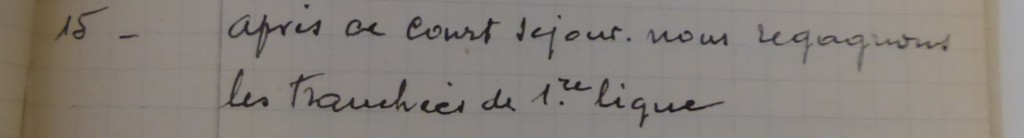 15 - après ce court séjour. nous regagnons
les tranchées de 1.re ligne